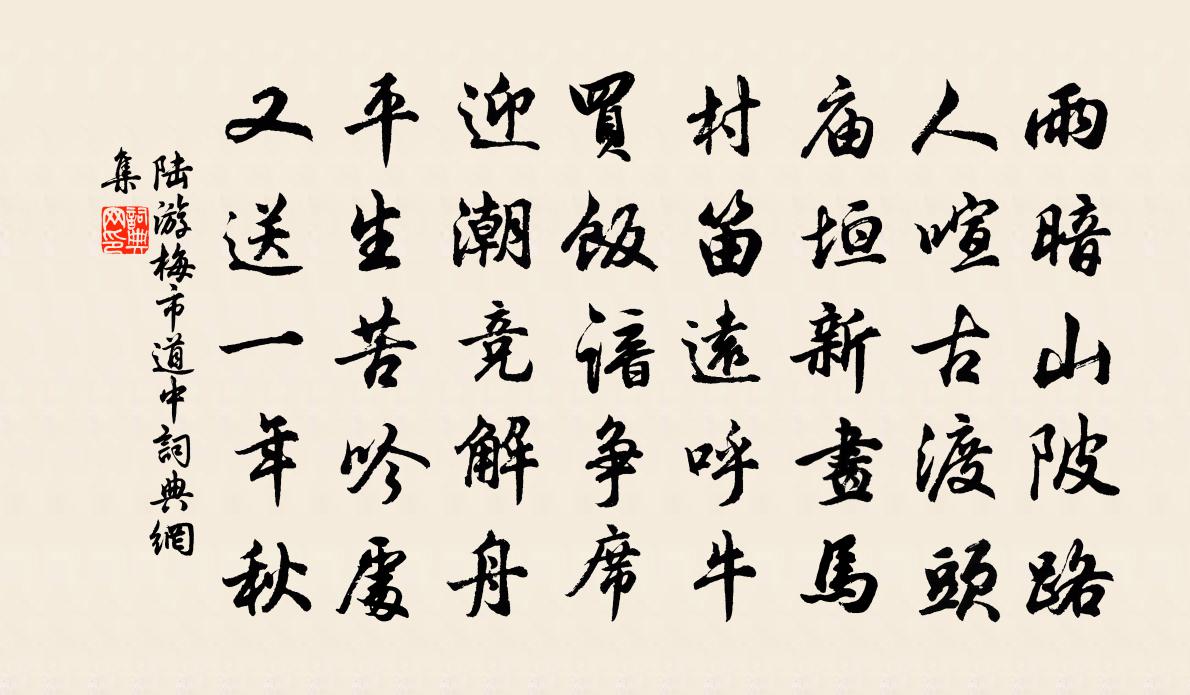 雨暗山陂路
人喧古渡頭
庙垣新畫馬
村笛遠呼牛
買飯諳争席
迎潮竞解舟
平生苦吟處
又送一年秋
陆游梅市道中詞典網
集
詞典
网印